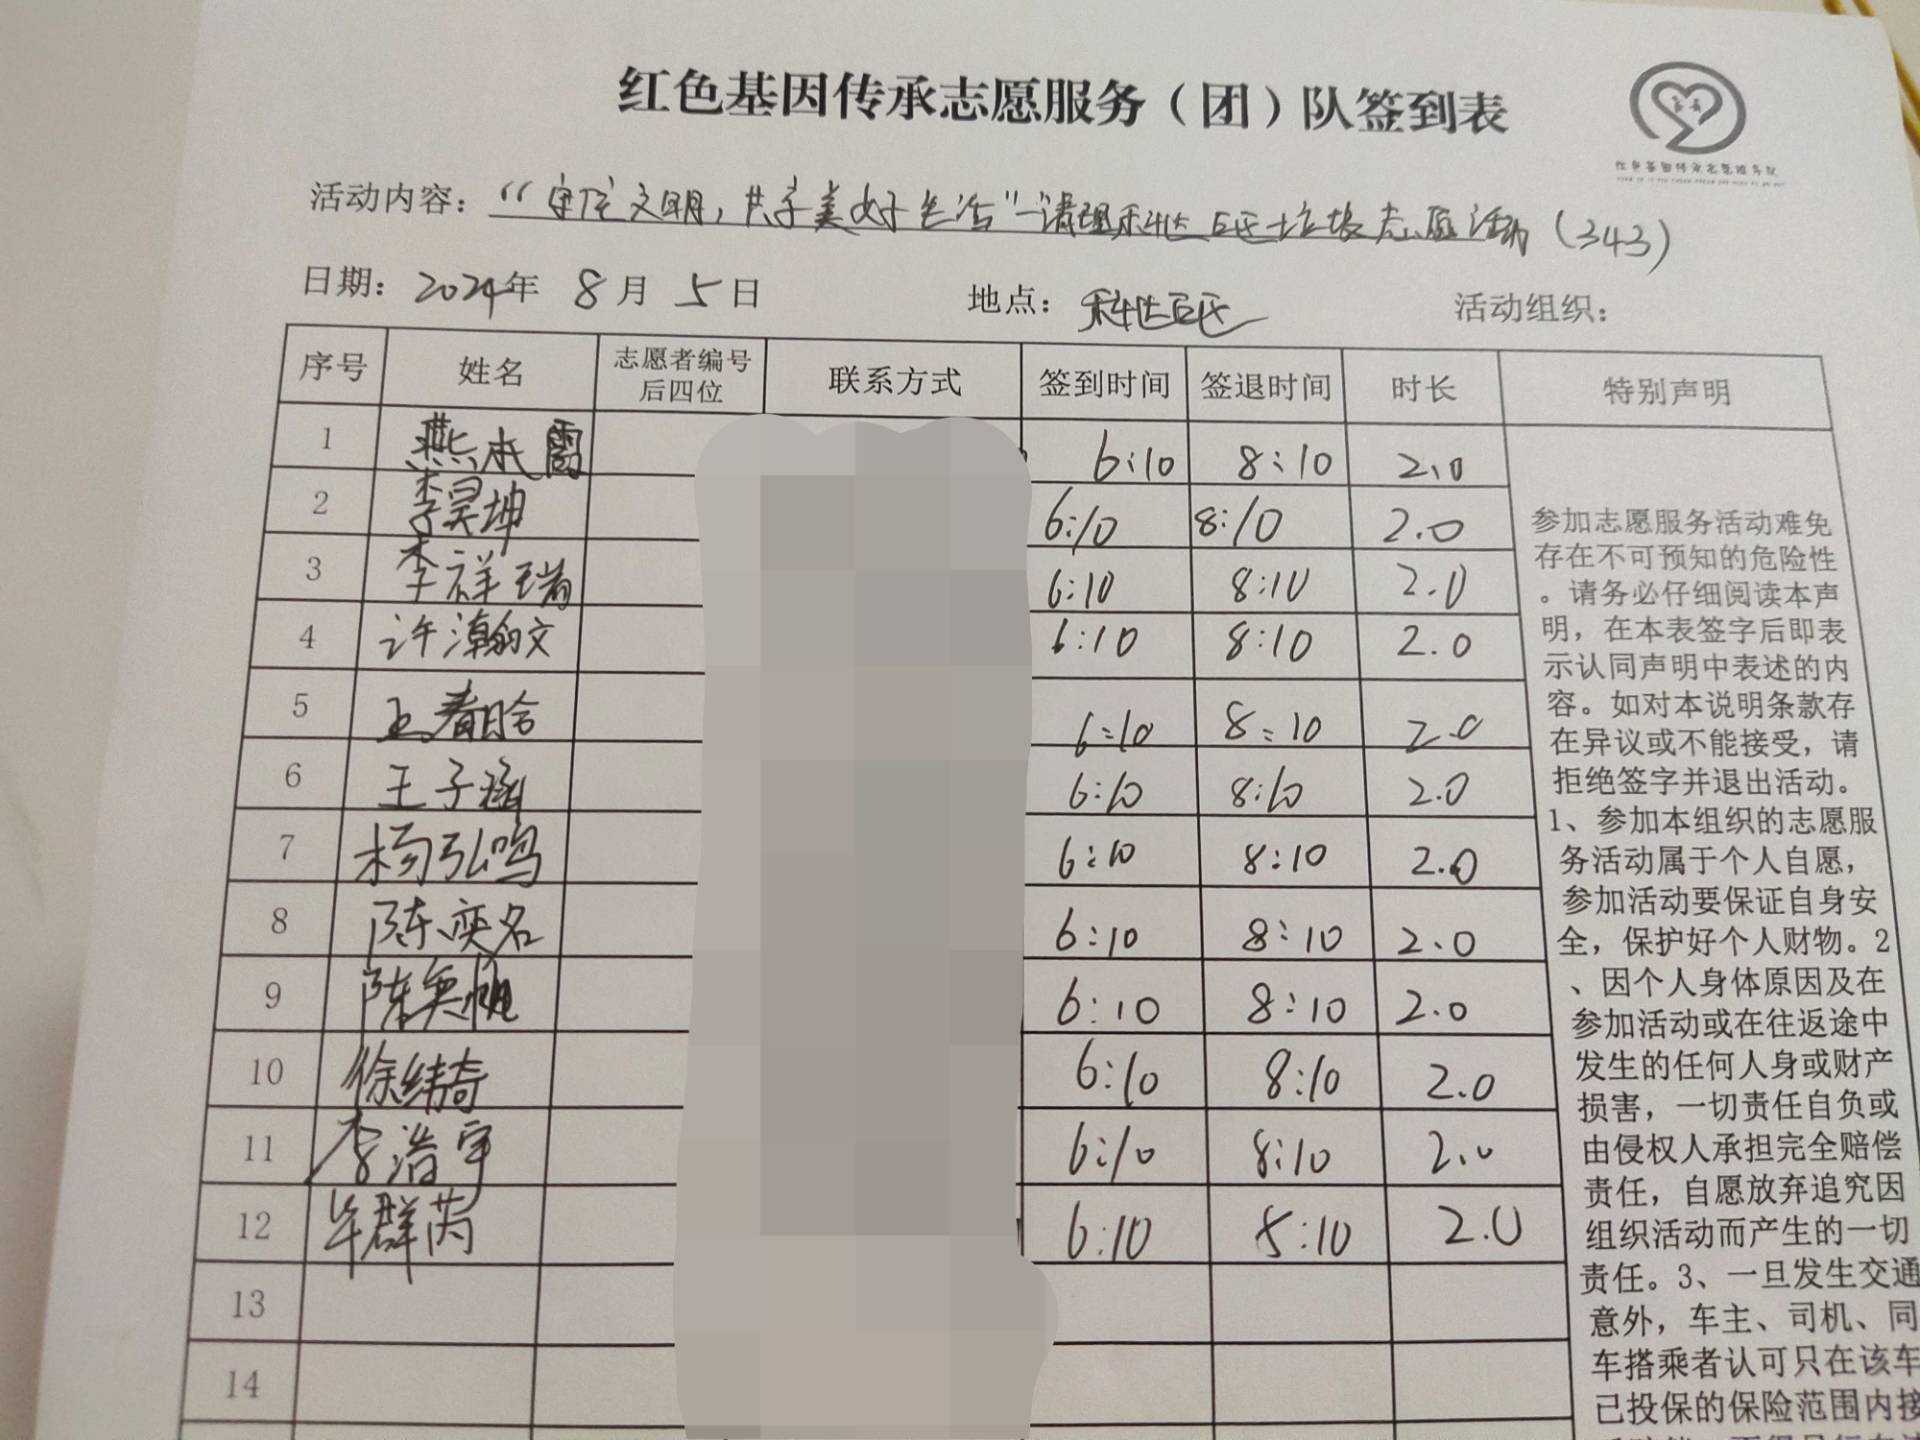 红色基因传承志愿服务（团）队签到表
红色基因传承志愿服务队
活动内容：“守住文明，共享美好生活”—清理科达社区垃圾志愿活动（343）
日期：2024年 8月 5日 地点： 活动组织：
序号 姓名 志愿者编号后四位 联系方式 签到时间 签退时间 时长 特别声明
1 燕本霞 6:10 8:10 2.0
2 李昊坤 6:10 8:10 2.0
3 李祥瑞 6:10 8:10 2.0
4 许瀚文 6:10 8:10 2.0
5 6:10 8:10 2.0
6 王子涵 6:10 8:10 2.0
7 杨弘鸣 6:10 8:10 2.0
8 陈奕名 6:10 8:10 2.0
9 陈奕帆 6:10 8:10 2.0
10 徐绮 6:10 8:10 2.0
11 李浩宇 6:10 8:10 2.0
12 牟群芮 6:10 8:10 2.0
13
14
参加志愿服务活动难免
存在不可预知的危险性
。请务必仔细阅读本声
明，在本表签字后即表
示认同声明中表述的内
容。如对本说明条款存
在异议或不能接受，请
拒绝签字并退出活动。
1、参加本组织的志愿服
务活动属于个人自愿，
参加活动要保证自身安
全，保护好个人财物。2
、因个人身体原因及在
参加活动或在往返途中
发生的任何人身或财产
损害，一切责任自负或
由侵权人承担完全赔偿
责任，自愿放弃追究因
组织活动而产生的一切
责任。3、一旦发生交通
意外，车主、司机、同
车搭乘者认可只在该车
已投保的保险范围内接